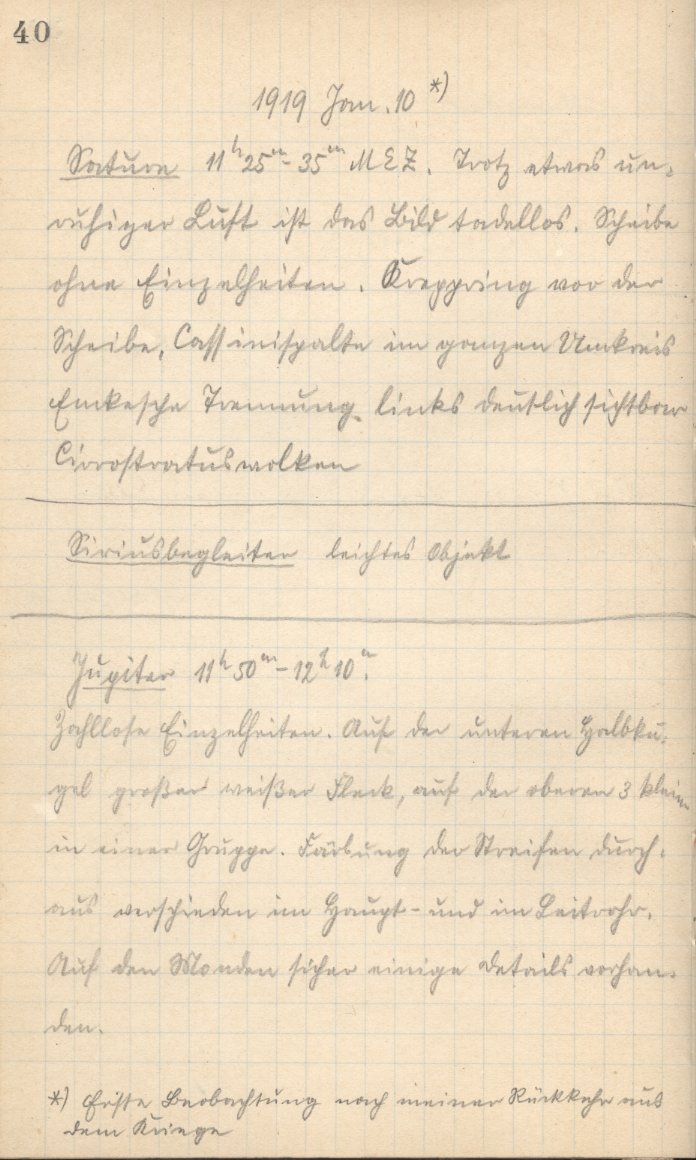 40
1919 Jan. 10 *)
Saturn 11h 25m - 35m M E Z. Trotz etwas un-
ruhiger Luft ist das Bild tadellos. Scheibe
ohne Einzelheiten. Kreppring vor der
Scheibe, Cassinispalte im ganzen Umkreis
Enkesche Trennung links deutlich sichtbar
Cirrostratuswolken
Siriusbegleiter leichtes Objekt
Jupiter 11h 50m - 12h 10m.
Zahllose Einzelheiten. Auf der unteren Halbku-
gel großer weißer Fleck, auf der oberen 3 kleine
in einer Gruppe. Färbung der Streifen durch-
aus verschieden im Haupt- und im Leitrohr.
Auf den Monden sicher einige Details vorhan-
den.
*) Erste Beobachtung nach meiner Rückkehr aus
dem Kriege